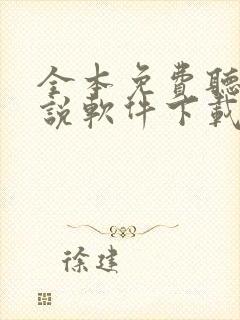 全本免費聽
說軟件下載
徐建